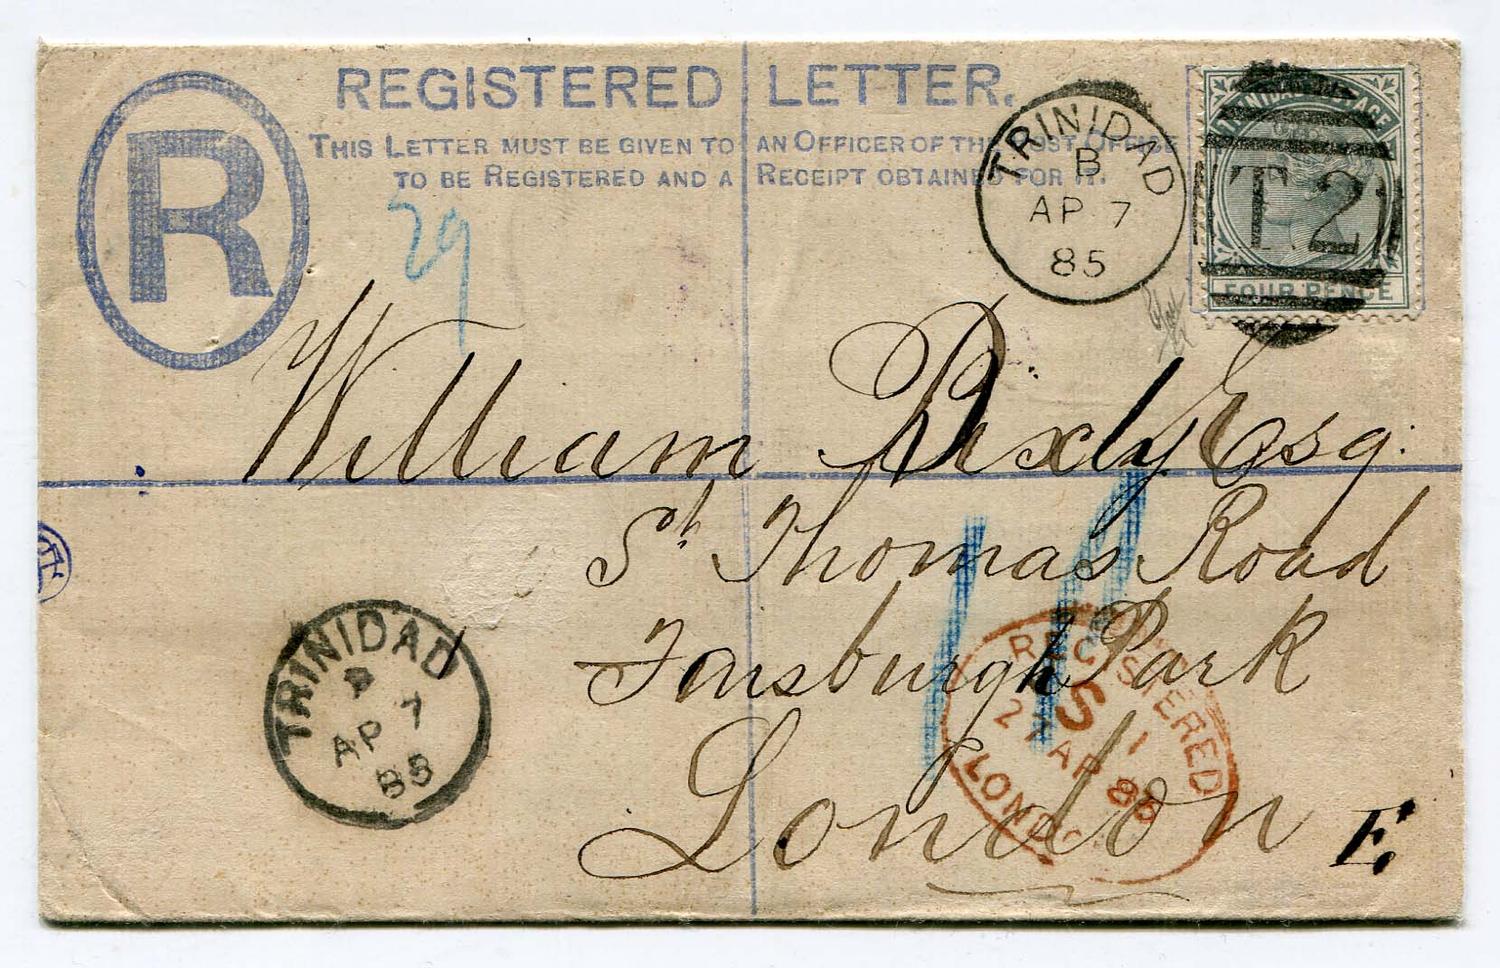 REGISTERED LETTER.
R
THIS LETTER MUST BE GIVEN TO AN OFFICER OF THE POST OFFICE
TO BE REGISTERED AND A RECEIPT OBTAINED FOR IT.
29
TRINIDAD
B
AP 7
85
TRINIDAD POSTAGE
T.2
FOUR PENCE
William Bixly Esq.
St Thomas Road
Finsburgh Park
London E.
TRINIDAD
B
AP 7
85
REGISTERED
S 1
27 AP 85
LONDON